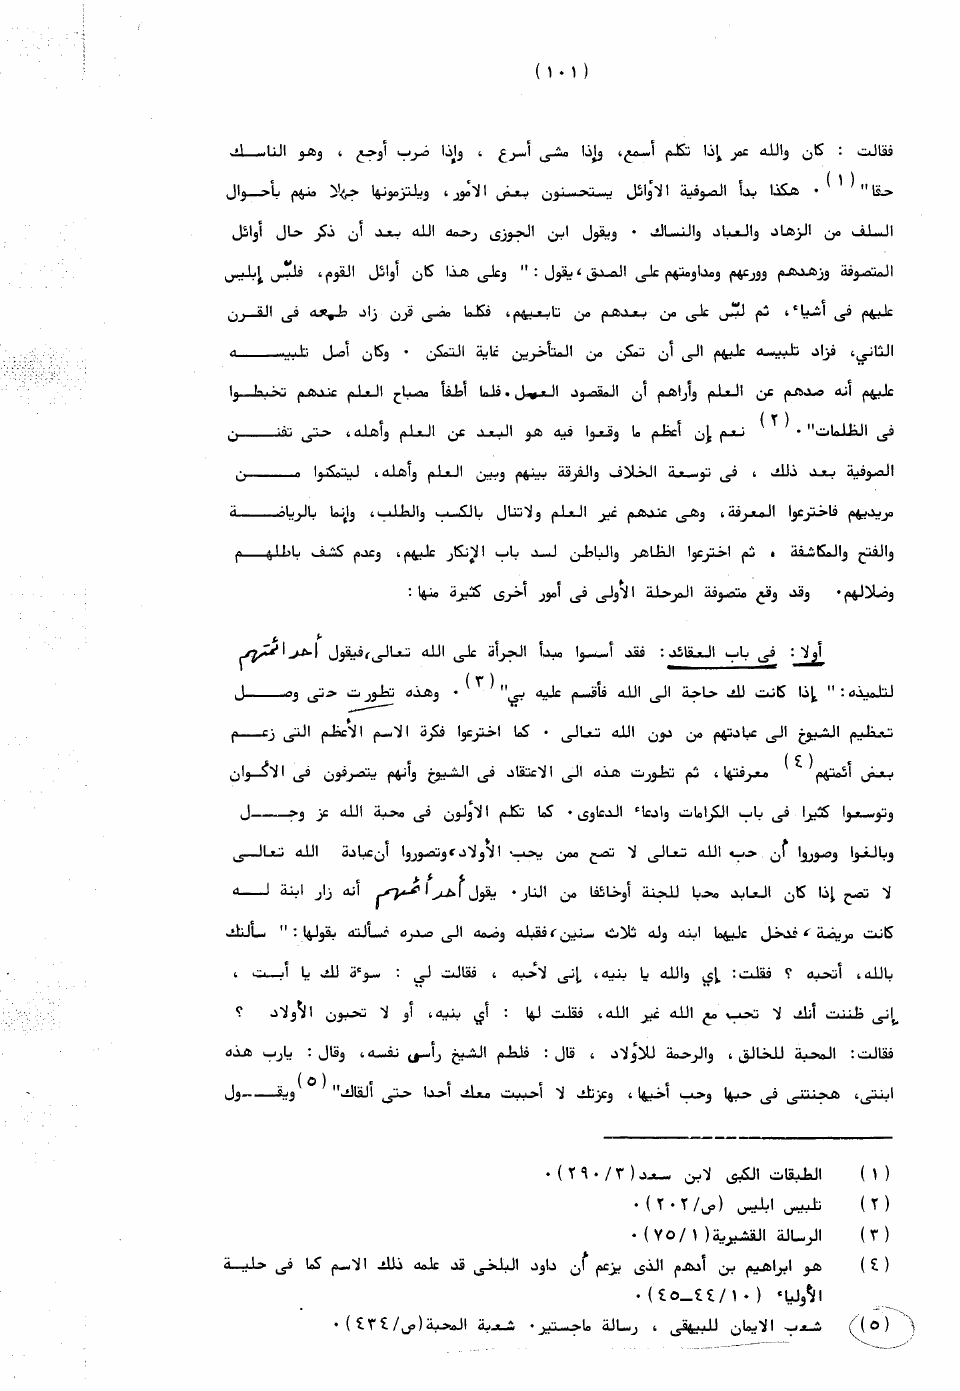 (١٠١)
فقالت : كان والله عمر إذا تكلم أسمع، وإذا مشى أسرع ، وإذا ضرب أوجع ، وهو الناسك
حقا"(١) ٠ هكذا بدأ الصوفية الأوائل يستحسنون بعض الأمور، ويلتزمونها جهلا منهم بأحوال
السلف من الزهاد والعباد والنساك ٠ ويقول ابن الجوزى رحمه الله بعد أن ذكر حال أوائل
المتصوفة وزهدهم وورعهم ومداومتهم على الصدق، يقول :" وعلى هذا كان أوائل القوم، فلبّس إبليس
عليهم فى أشياء، ثم لبّس على من بعدهم من تابعيهم، فكلما مضى قرن زاد طمعه فى القرن
الثاني، فزاد تلبيسه عليهم الى أن تمكن من المتأخرين غاية التمكن ٠ وكان أصل تلبيسه
عليهم أنه صدهم عن العلم وأراهم أن المقصود العمل٠ فلما أطفأ مصباح العلم عندهم تخبطوا
فى الظلمات"٠(٢) نعم إن أعظم ما وقعوا فيه هو البعد عن العلم وأهله، حتى تفنن
الصوفية بعد ذلك ، فى توسعة الخلاف والفرقة بينهم وبين العلم وأهله، ليتمكنوا من
مريديهم فاخترعوا المعرفة، وهى عندهم غير العلم ولاتنال بالكسب والطلب، وإنما بالرياضة
والفتح والمكاشفة ٠ ثم اخترعوا الظاهر والباطن لسد باب الإنكار عليهم، وعدم كشف باطلهم
وضلالهم٠ وقد وقع متصوفة المرحلة الأولى فى أمور أخرى كثيرة منها :
أولا : فى باب العقائد : فقد أسسوا مبدأ الجرأة على الله تعالى، فيقول أحد أئمتهم
لتلميذه :" إذا كانت لك حاجة الى الله فأقسم عليه بي"(٣) ٠ وهذه تطورت حتى وصل
تعظيم الشيوخ الى عبادتهم من دون الله تعالى ٠ كما اخترعوا فكرة الاسم الأعظم التى زعم
بعض أئمتهم(٤) معرفتها، ثم تطورت هذه الى الاعتقاد فى الشيوخ وأنهم يتصرفون فى الأكوان
وتوسعوا كثيرا فى باب الكرامات وادعاء الدعاوى٠ كما تكلم الأولون فى محبة الله عز وجل
وبالغوا وصوروا أن حب الله تعالى لا تصح ممن يحب الأولاد، وتصوروا أن عبادة الله تعالى
لا تصح إذا كان العابد محبا للجنة أوخائفا من النار٠ يقول أحد أئمتهم أنه زار ابنة له
كانت مريضة، فدخل عليهما ابنه وله ثلاث سنين، فقبله وضمه الى صدره فسألته بقولها :" سألتك
بالله، أتحبه ؟ فقلت: إي والله يا بنيه، إنى لأحبه ، فقالت لي : سوءة لك يا أبت ،
إنى ظننت أنك لا تحب مع الله غير الله، فقلت لها : أي بنيه، أو لا تحبون الأولاد ؟
فقالت: المحبة للخالق ، والرحمة للأولاد ، قال : فلطم الشيخ رأسى نفسه، وقال : يارب هذه
ابنتى، هجنتنى فى حبها وحب أخيها، وعزتك لا أحببت معك أحدا حتى ألقاك"(٥) ويقول
(١) الطبقات الكبى لابن سعد(٢٩٠/٣)٠
(٢) تلبيس ابليس (ص/٢٠٢)٠
(٣) الرسالة القشيرية(٧٥/١)٠
(٤) هو ابراهيم بن أدهم الذى يزعم أن داود البلخى قد علمه ذلك الاسم كما فى حلية
الأولياء (١٠/٤٤ــ٤٥)٠
(٥) شعب الايمان للبيهقى ، رسالة ماجستير٠ شعبة المحبة(ص/٤٣٤)٠